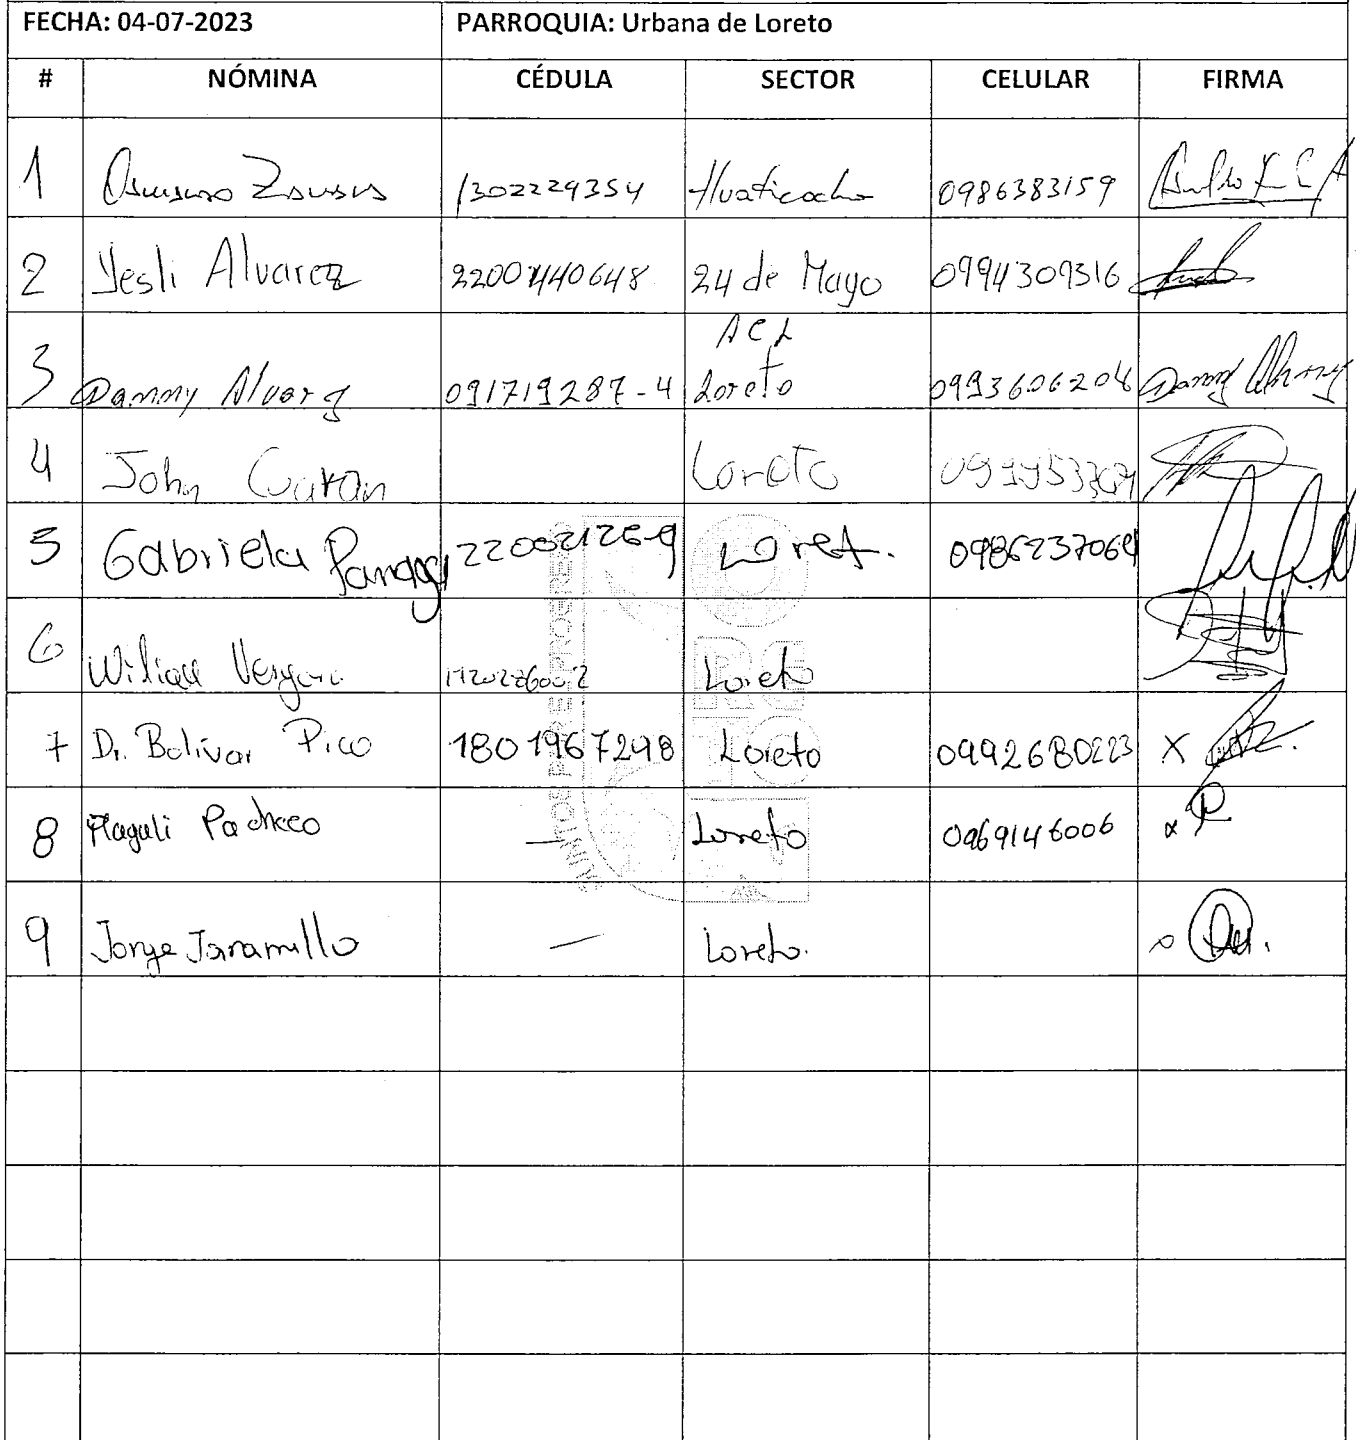 FECHA: 04-07-2023 PARROQUIA: Urbana de Loreto
# NÓMINA CÉDULA SECTOR CELULAR FIRMA
1 1302229354 Huaticocha 0986383159
2 Yesli Alvarez 2200440648 24 de Mayo 0994309316
ACL
3 Danny Alvarez 091719287-4 Loreto 0993606204 Danny Alvarez
4 John Loreto
5 Gabriela 220021269 Loret. 0986237064
6 Loreto
7 Dr. Bolivar Pico 1801967298 Loreto 0992680223 X
8 Magali Pacheco — Loreto 0969146006 x
9 Jorge Jaramillo — Loreto.